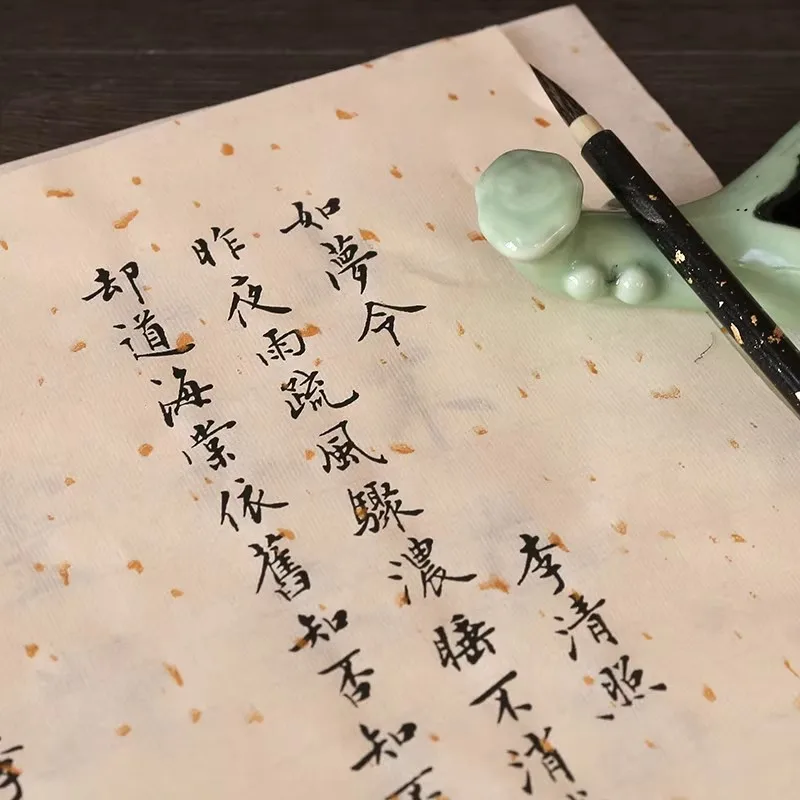 如夢令 李清照
昨夜雨疏風驟濃睡不消
却道海棠依舊知否知